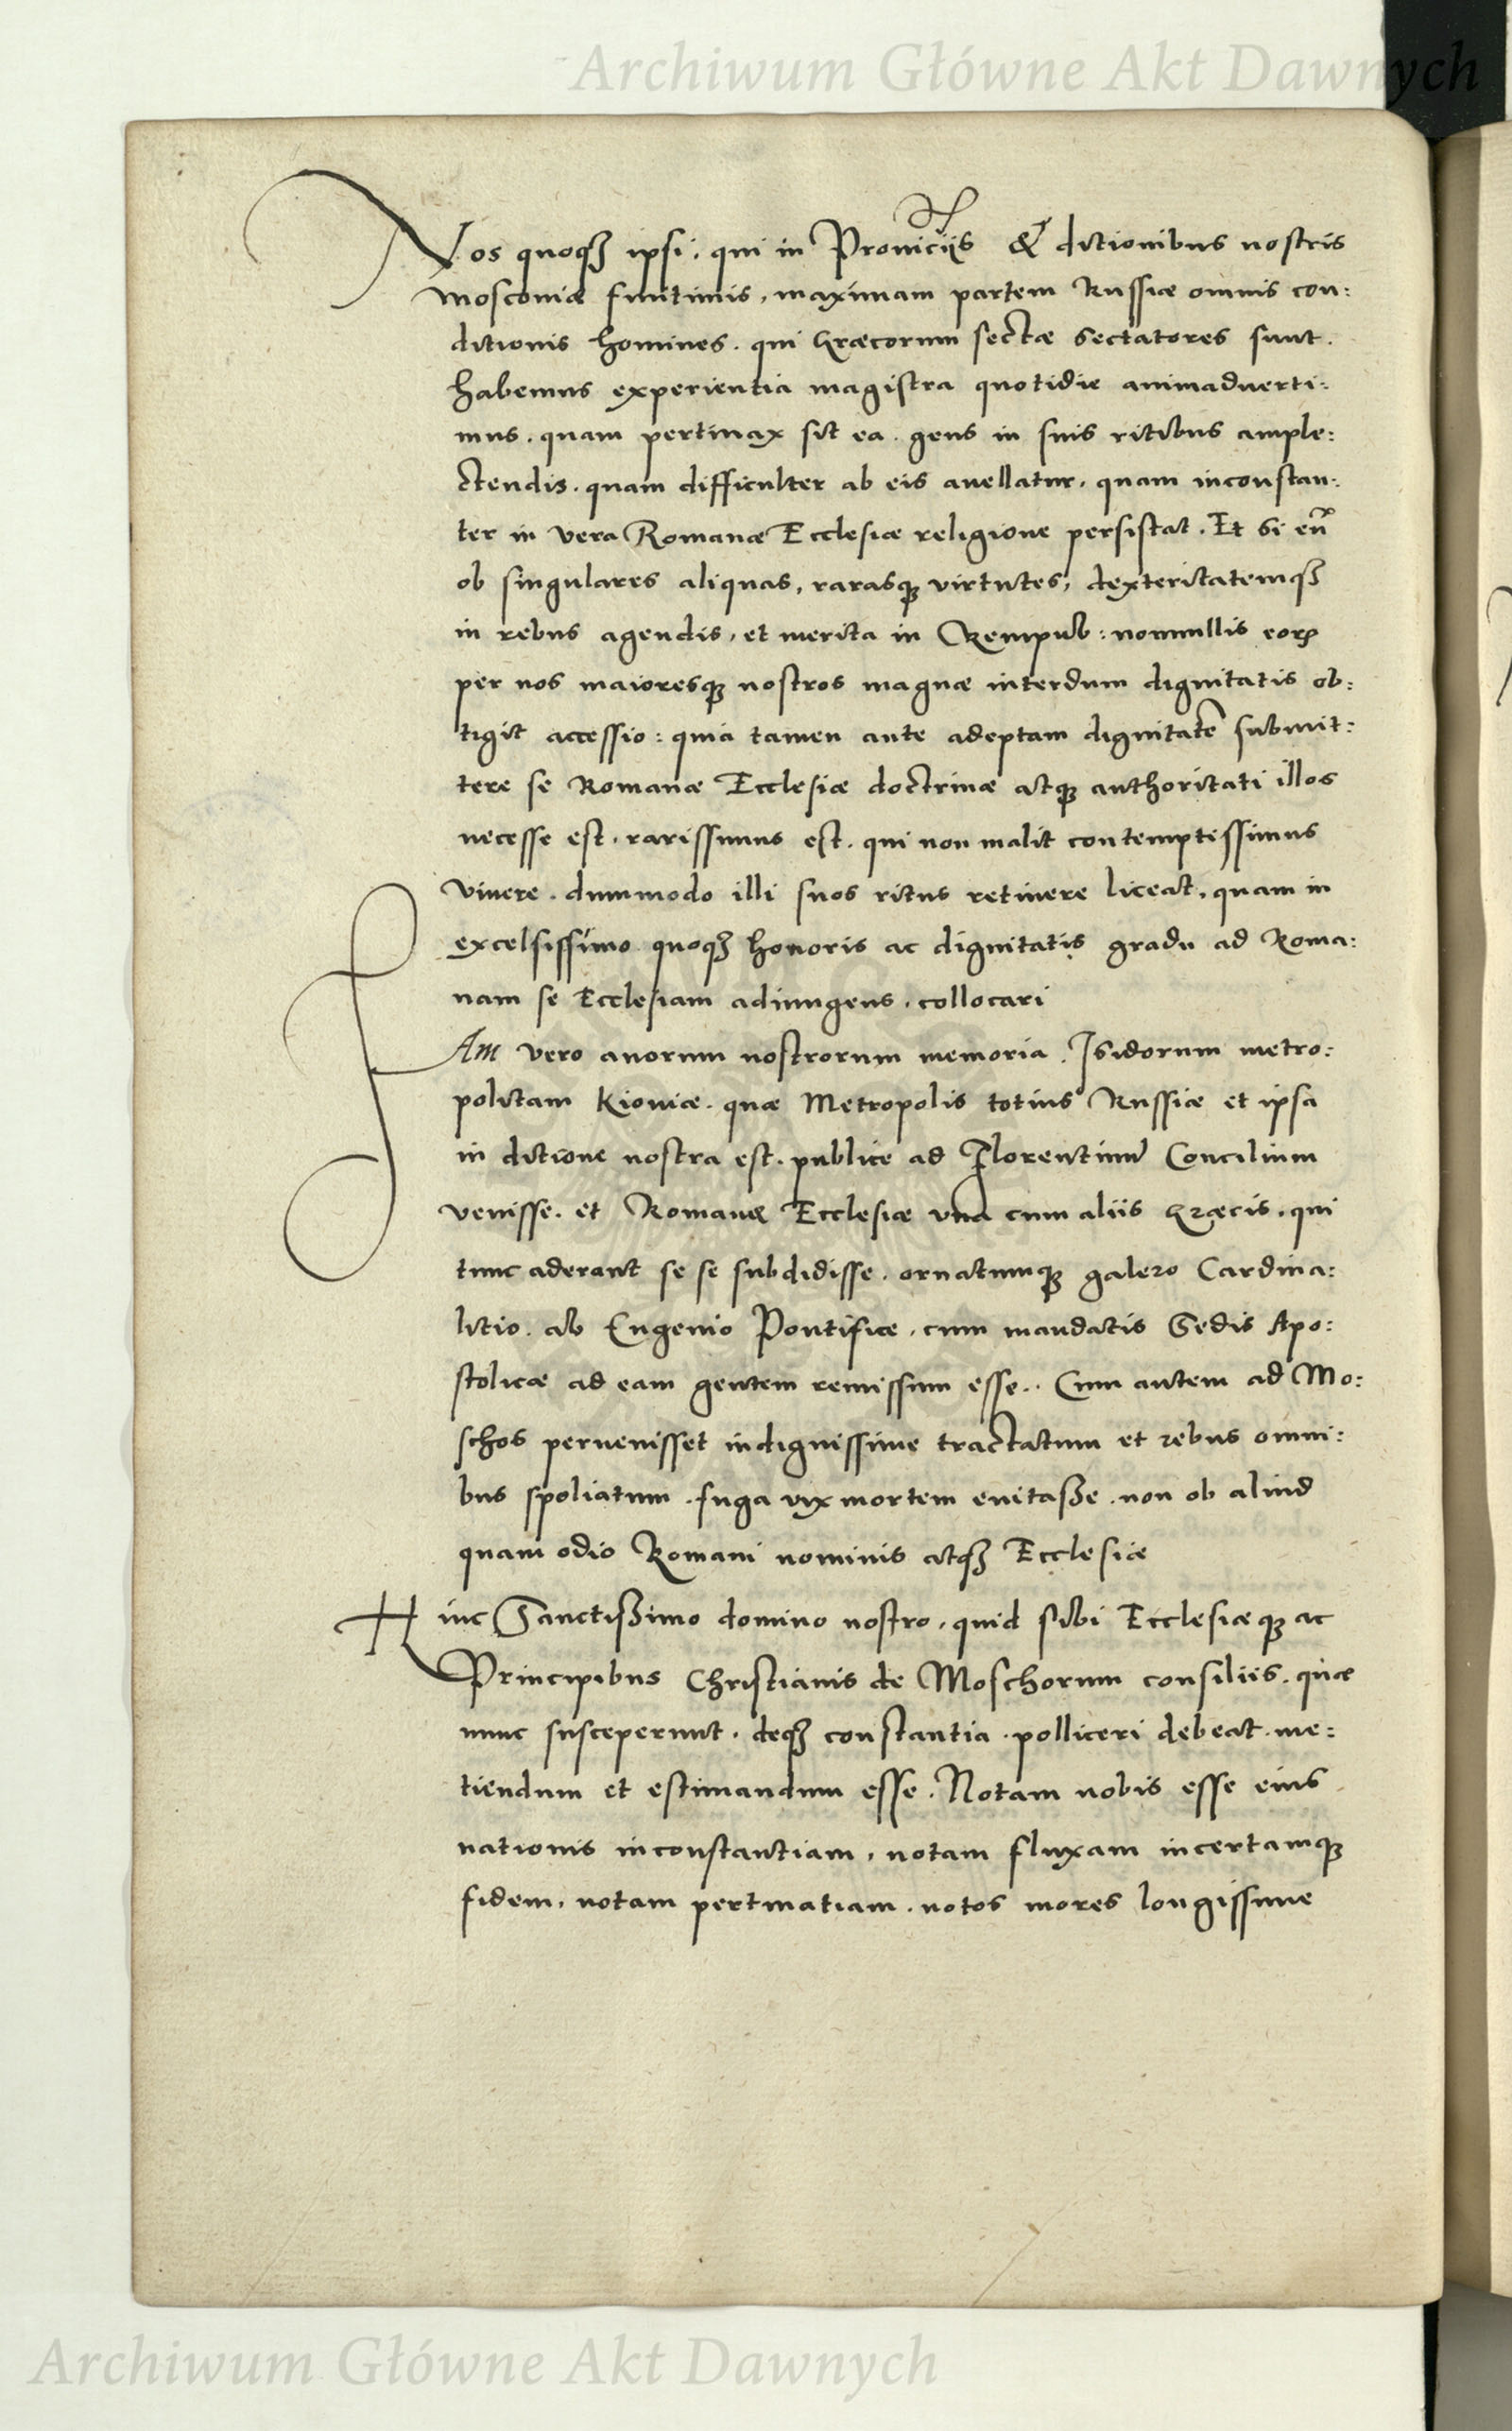 Archiwum Główne Akt Dawnych
Nos quoqȝ ipsi, qui in Prouiciis & ditionibus nostris
Moscouiæ finitimis, maximam partem Russiæ omnis con:
ditionis homines. qui Græcorum sectæ sectatores sunt.
habemus experientia magistra quotidie animaduerti:
mus. quam pertinax sit ea gens in suis ritibus ample:
ctendis. quam difficulter ab eis auellatur. quam inconstan:
ter in vera Romanæ Ecclesiæ religione persistat. Et si em̃
ob singulares aliquas, rarasqȝ virtutes, dexteritatemqȝ
in rebus agendis, et merita in Rempub: nonnullis eorꝝ
per nos maioresqȝ nostros magnæ interdum dignitatis ob:
tigit accessio: quia tamen ante adeptam dignitatē submit:
tere se Romanæ Ecclesiæ doctrinæ atqȝ authoritati illos
necesse est. rarissimus est. qui non malit contemptissimus
viuere. dummodo illi suos ritus retinere liceat, quam in
excelsissimo quoqȝ honoris ac dignitatis gradu ad Roma:
nam se Ecclesiam adiungens, collocari
JAm vero auorum nostrorum memoria. Isidorum metro:
politam Kiouiæ. quæ Metropolis totius Russiæ et ipsa
in ditione nostra est. publice ad Florentinū Concilium
venisse. et Romanę Ecclesiæ vna cum aliis Græcis. qui
tunc aderant se se subdidisse. ornatumqȝ galero Cardina:
litio. ab Eugenio Pontifice, cum mandatis Sedis Apo:
stolicæ ad eam gentem remissum esse. Cum autem ad Mo:
schos peruenisset indignissime tractatum et rebus omni:
bus spoliatum. fuga vix mortem euitaße. non ob aliud
quam odio Romani nominis atqȝ Ecclesiæ
Hinc Sanctißimo domino nostro, quid sibi Ecclesiæqȝ ac
Principibus Christianis de Moschorum consiliis. quæ
nunc susceperunt. deqȝ constantia. polliceri debeat. me:
tiendum et estimandum esse. Notam nobis esse eius
nationis inconstantiam, notam fluxam incertamqȝ
fidem, notam pertinatiam. notos mores longissime
Archiwum Główne Akt Dawnych